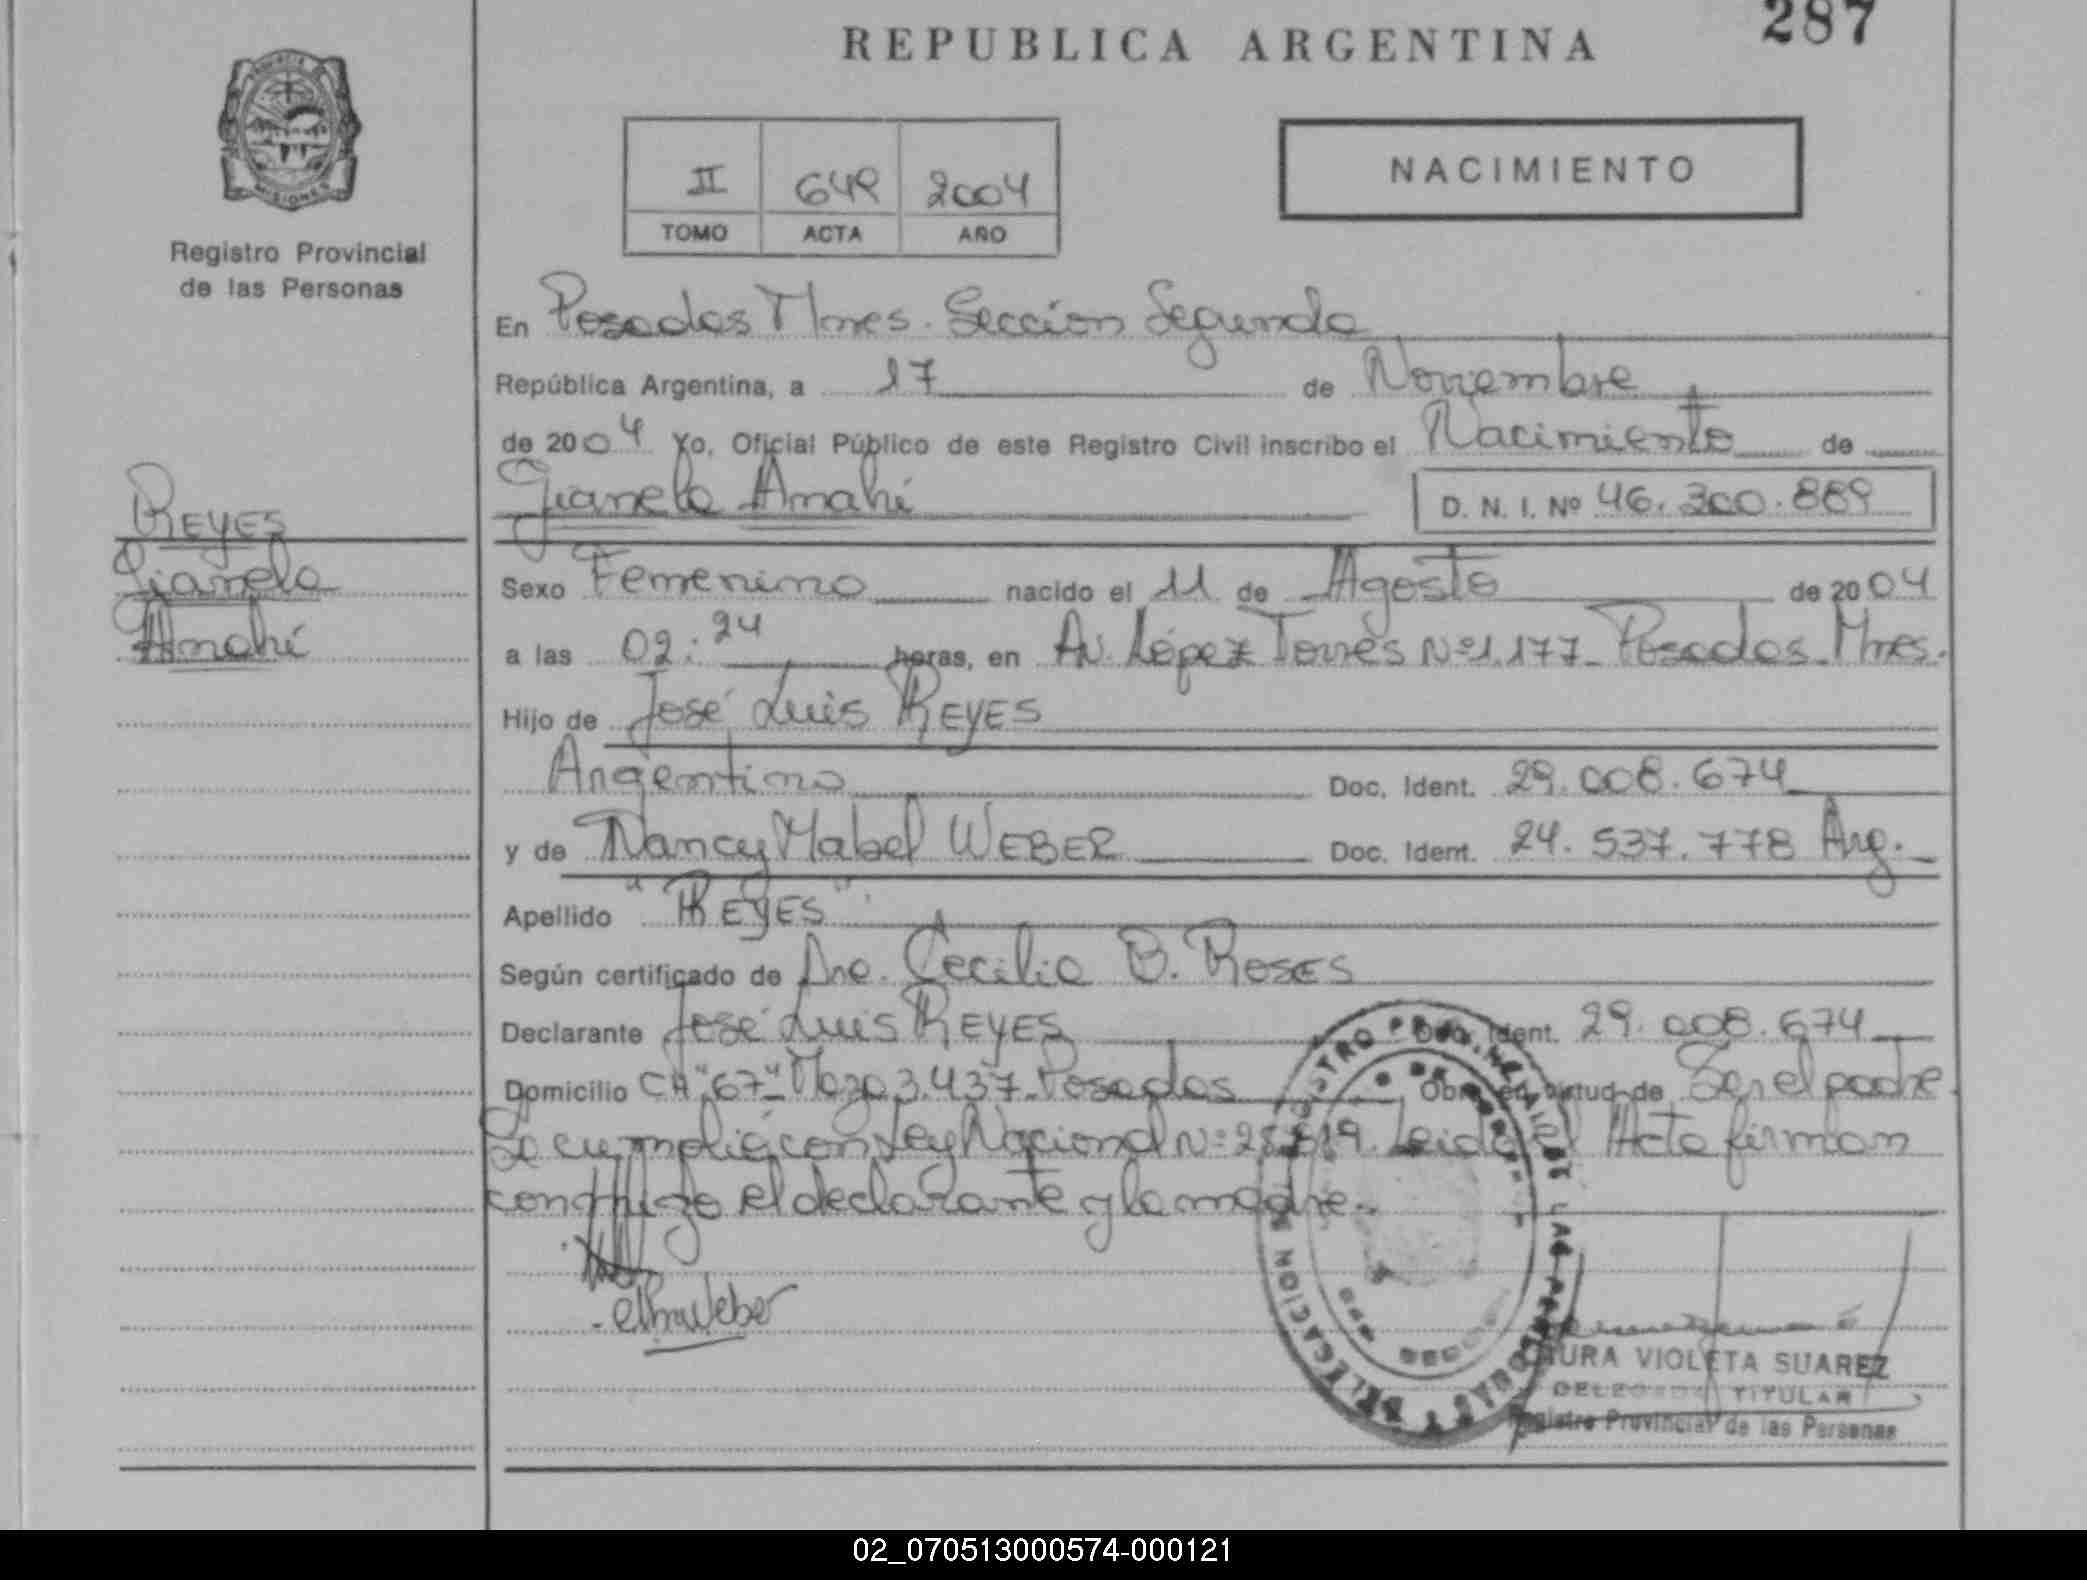 REPUBLICA ARGENTINA
287
PROVINCIA
MISIONES
Registro Provincial
de las Personas
II 649 2004
TOMO ACTA AÑO
NACIMIENTO
En Posadas Mnes. Sección Segunda
República Argentina, a 17 de Noviembre
de 2004 Yo, Oficial Público de este Registro Civil inscribo el Nacimiento de
Gianela Amahí
D. N. I. Nº 46.300.889
REYES
Gianela
Amahí
Sexo Femenino nacido el 11 de Agosto de 2004
a las 02:24 horas, en Av. López Torres Nº 1.177 Posadas Mnes.
Hijo de José Luis REYES
Argentino Doc. Ident. 29.008.674
y de Nancy Mabel WEBER Doc. Ident. 24.537.778 Arg.
Apellido "REYES"
Según certificado de Dra. Cecilia B. ROSES
Declarante José Luis REYES Doc. Ident. 29.008.674
Domicilio CH "67" Mza 3.437 Posadas Obra en virtud de Ser el padre
Se cumplió con Ley Nacional Nº Leida el Acta firman
conmigo el declarante y la madre.
Weber
LAURA VIOLETA SUAREZ
DELEGADA TITULAR
Registro Provincial de las Personas
02_070513000574-000121